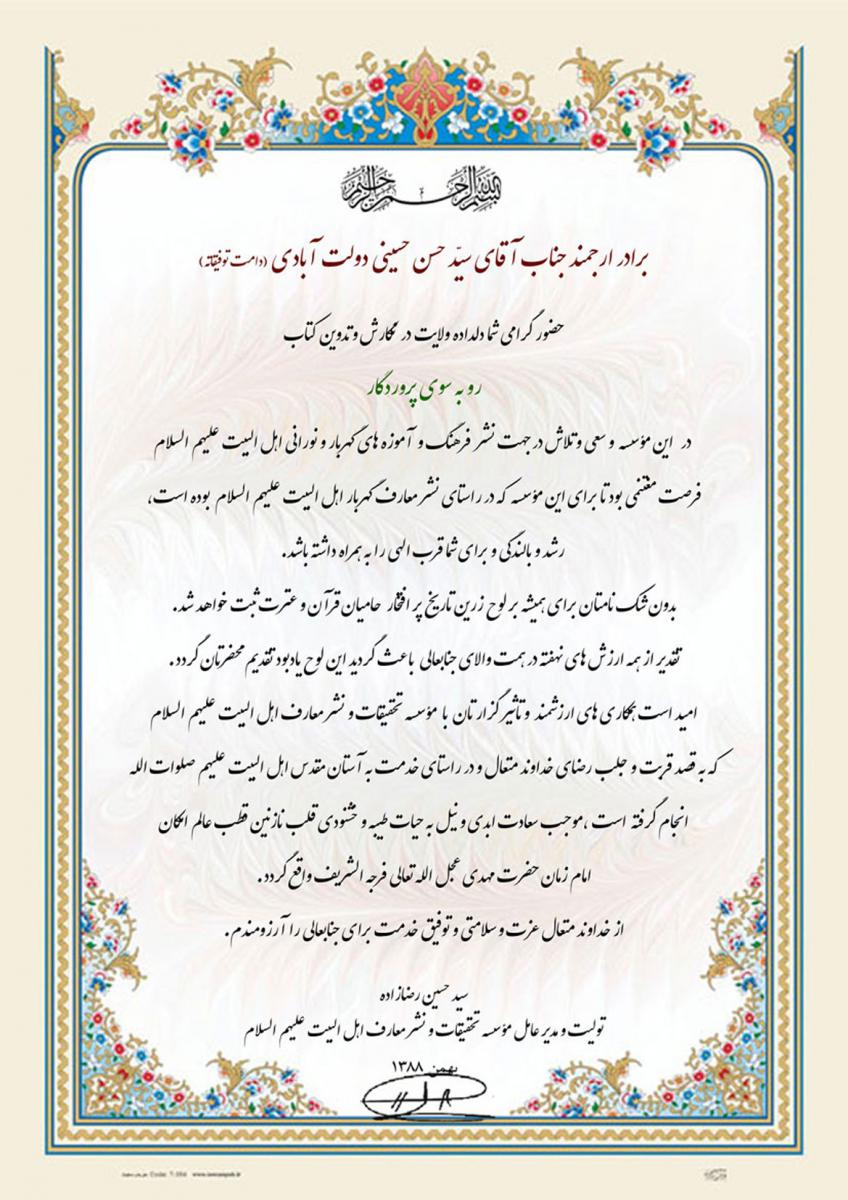 بسم الله الرحمن الرحیم
برادر ارجمند جناب آقای سیّد حسن حسینی دولت آبادی (دامت توفیقاته)
حضور گرامی شما دلداده ولایت در نگارش و تدوین کتاب
رو به سوی پروردگار
در این مؤسسه و سعی و تلاش در جهت نشر فرهنگ و آموزه های گهربار و نورانی اهل البیت علیهم السلام
فرصت مغتنمی بود تا برای این مؤسسه که در راستای نشر معارف گهربار اهل البیت علیهم السلام بوده است،
رشد و بالندگی و برای شما قرب الهی را به همراه داشته باشد.
بدون شک نامتان برای همیشه بر لوح زرین تاریخ پر افتخار حامیان قرآن و عترت ثبت خواهد شد.
تقدیر از همه ارزش های نهفته در همت والای جنابعالی باعث گردید این لوح یادبود تقدیم محضرتان گردد.
امید است همکاری های ارزشمند و تاثیرگزارتان با مؤسسه تحقیقات و نشر معارف اهل البیت علیهم السلام
که به قصد قربت و جلب رضای خداوند متعال و در راستای خدمت به آستان مقدس اهل البیت علیهم صلوات الله
انجام گرفته است ،موجب سعادت ابدی و نیل به حیات طیبه و خشنودی قلب نازنین قطب عالم امکان
امام زمان حضرت مهدی عجل الله تعالی فرجه الشریف واقع گردد.
از خداوند متعال عزت و سلامتی و توفیق خدمت برای جنابعالی را آرزومندم.
سید حسین رضازاده
تولیت و مدیر عامل مؤسسه تحقیقات و نشر معارف اهل البیت علیهم السلام
بهمن ۱۳۸۸